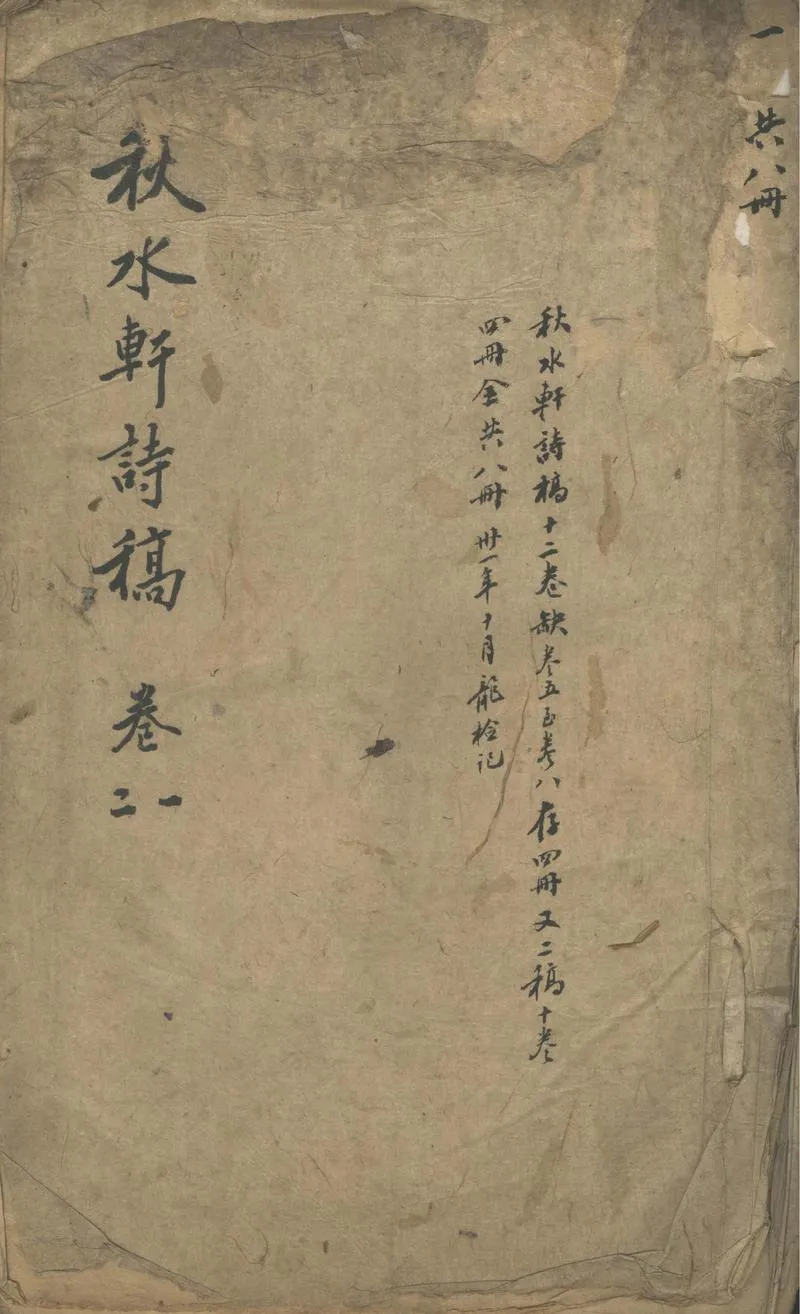 一 共八冊
秋水軒詩稿十二卷缺卷五至卷八存四冊又二稿十卷
四冊全共八冊 卅一年十月龍栓記
秋水軒詩稿 卷一
二